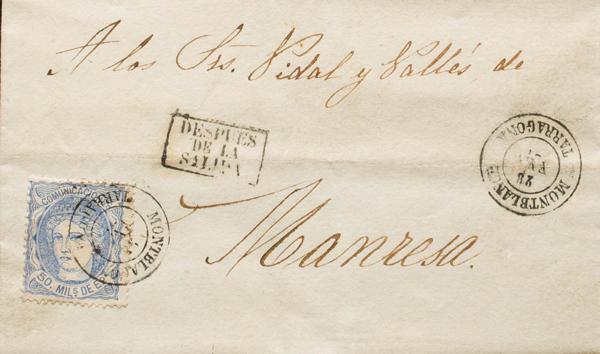 A los Srs. Vidal y Vallés de
DESPUES
DE LA
SALIDA
MONTBLANCH
TARRAGONA
FEB
Manresa.
MONTBLANCH
TARRAGONA
COMUNICACIONES
50. MILS DE E